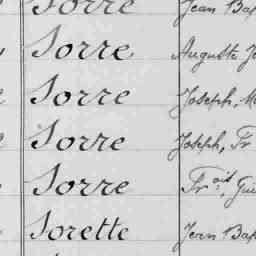 Sorre Jean Bap
Sorre Auguste J
Sorre Joseph, M
Sorre Joseph, Fr
Sorre Fr.ois, Gui
Sorette Jean Bap